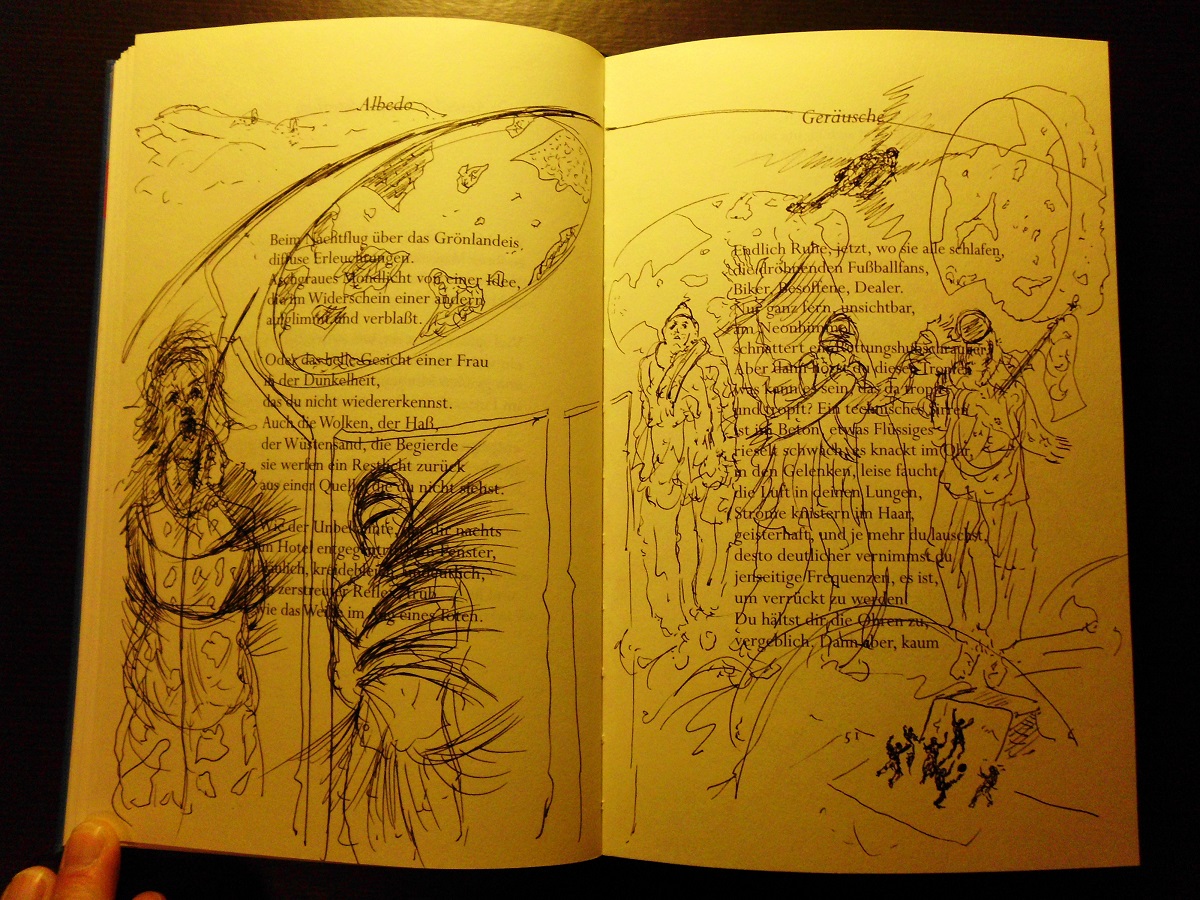 Albedo
Beim Nachtflug über das Grönlandeis,
diffuse Erleuchtungen.
Aschgraues Mondlicht von einer Idee,
die im Widerschein einer andern
aufglimmt und verblaßt.
Oder das helle Gesicht einer Frau
in der Dunkelheit,
das du nicht wiedererkennst.
Auch die Wolken, der Haß,
der Wüstensand, die Begierde –
sie werfen ein Restlicht zurück
aus einer Quelle, die du nicht siehst.
Wie der Unbekannte, der dir nachts
im Hotel entgegentritt am Fenster,
bläulich, kreidebleich, undeutlich,
ein zerstreuter Reflex, trüb
wie das Weiße im Aug eines Toten.
Geräusche
Endlich Ruhe, jetzt, wo sie alle schlafen,
die dröhnenden Fußballfans,
Biker, Besoffene, Dealer.
Nur ganz fern, unsichtbar,
am Neonhimmel
schnattert ein Rettungshubschrauber.
Aber dann hörst du dieses Tropfen
was kann es sein, das da tropft
und tropft? Ein technisches Sirren
ist im Beton, etwas Flüssiges
rieselt schwach, es knackt im Ohr,
in den Gelenken, leise faucht
die Luft in deinen Lungen,
Ströme knistern im Haar,
geisterhaft, und je mehr du lauschst,
desto deutlicher vernimmst du
jenseitige Frequenzen, es ist,
um verrückt zu werden.
Du hältst dir die Ohren zu,
vergeblich. Dann aber, kaum